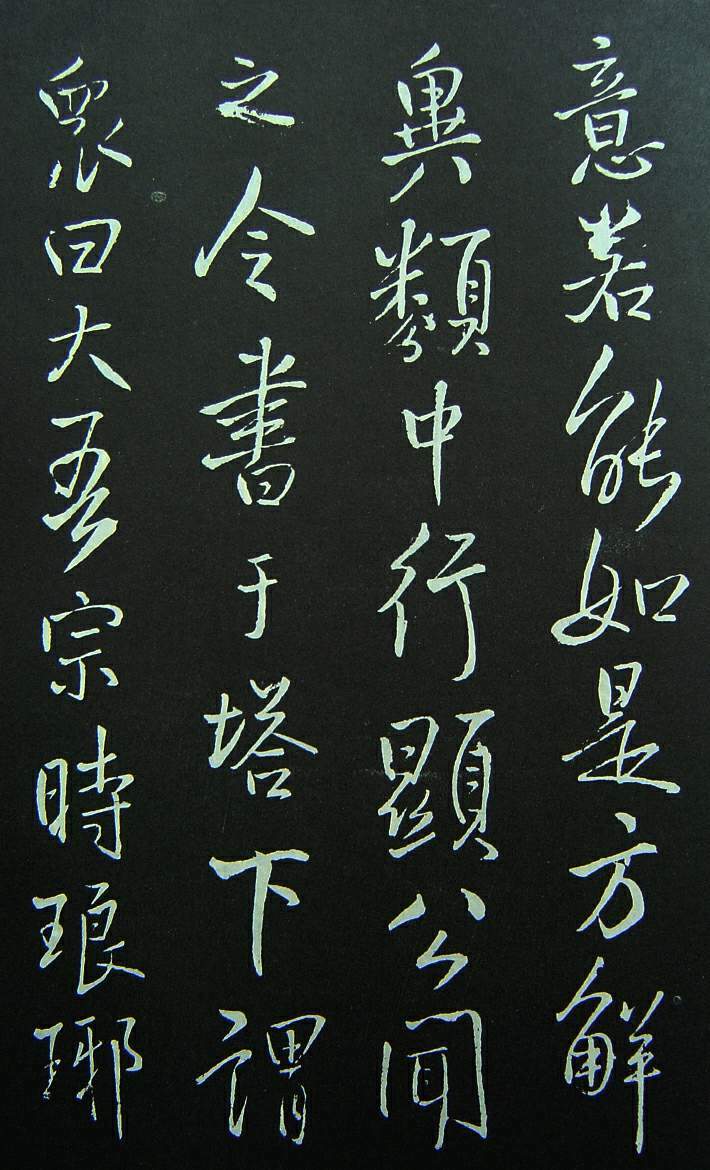 意若能如是方解
異類中行顯公聞
之令書于塔下謂
衆曰大吾宗時瑯
瑘